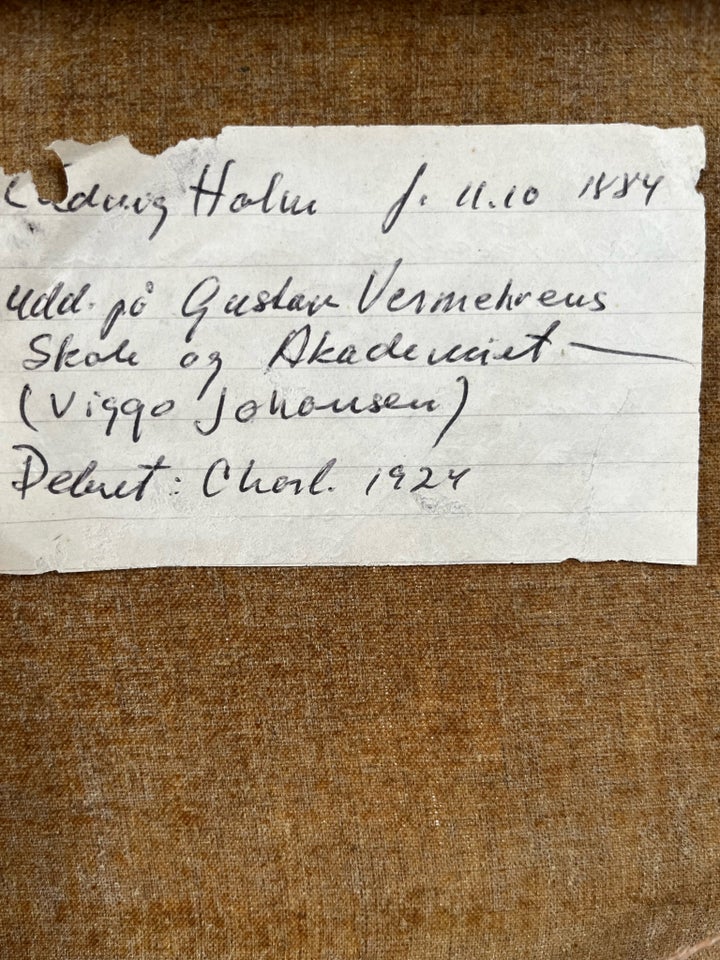 Ludwig Holm f. 11.10 1884
udd. på Gustav Vermehrens
Skole og Akademiet
(Viggo Johansen)
Debut: Charl. 1924